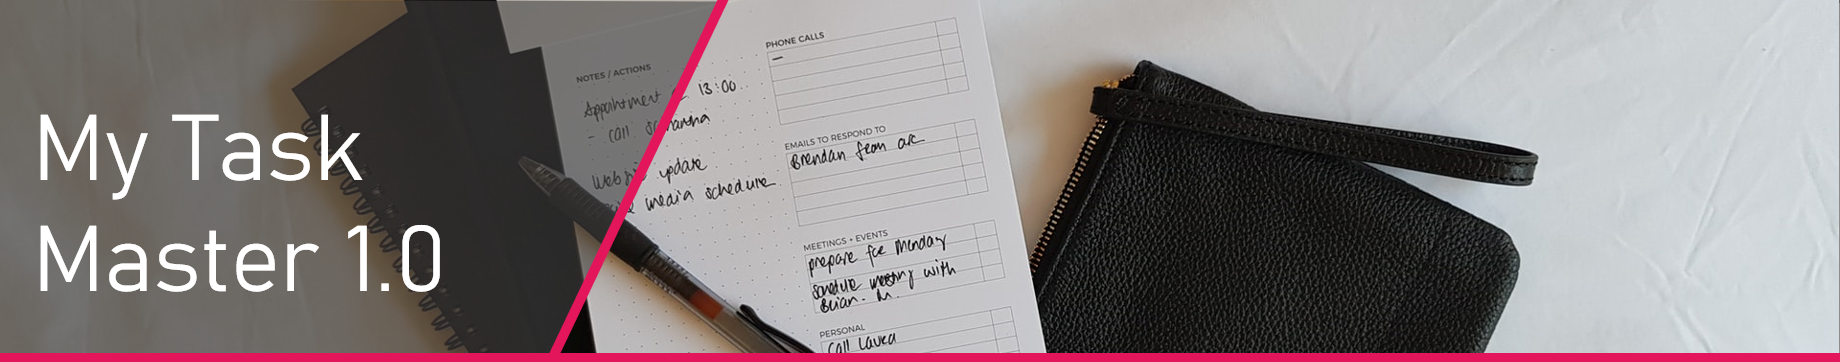 My Task
Master 1.0
NOTES / ACTIONS
Appointment 13:00
- call Samantha
Website update
media schedule
PHONE CALLS
EMAILS TO RESPOND TO
Brendan from arc
MEETINGS + EVENTS
prepare for Monday
schedule meeting with
Brian. M.
PERSONAL
call Laura